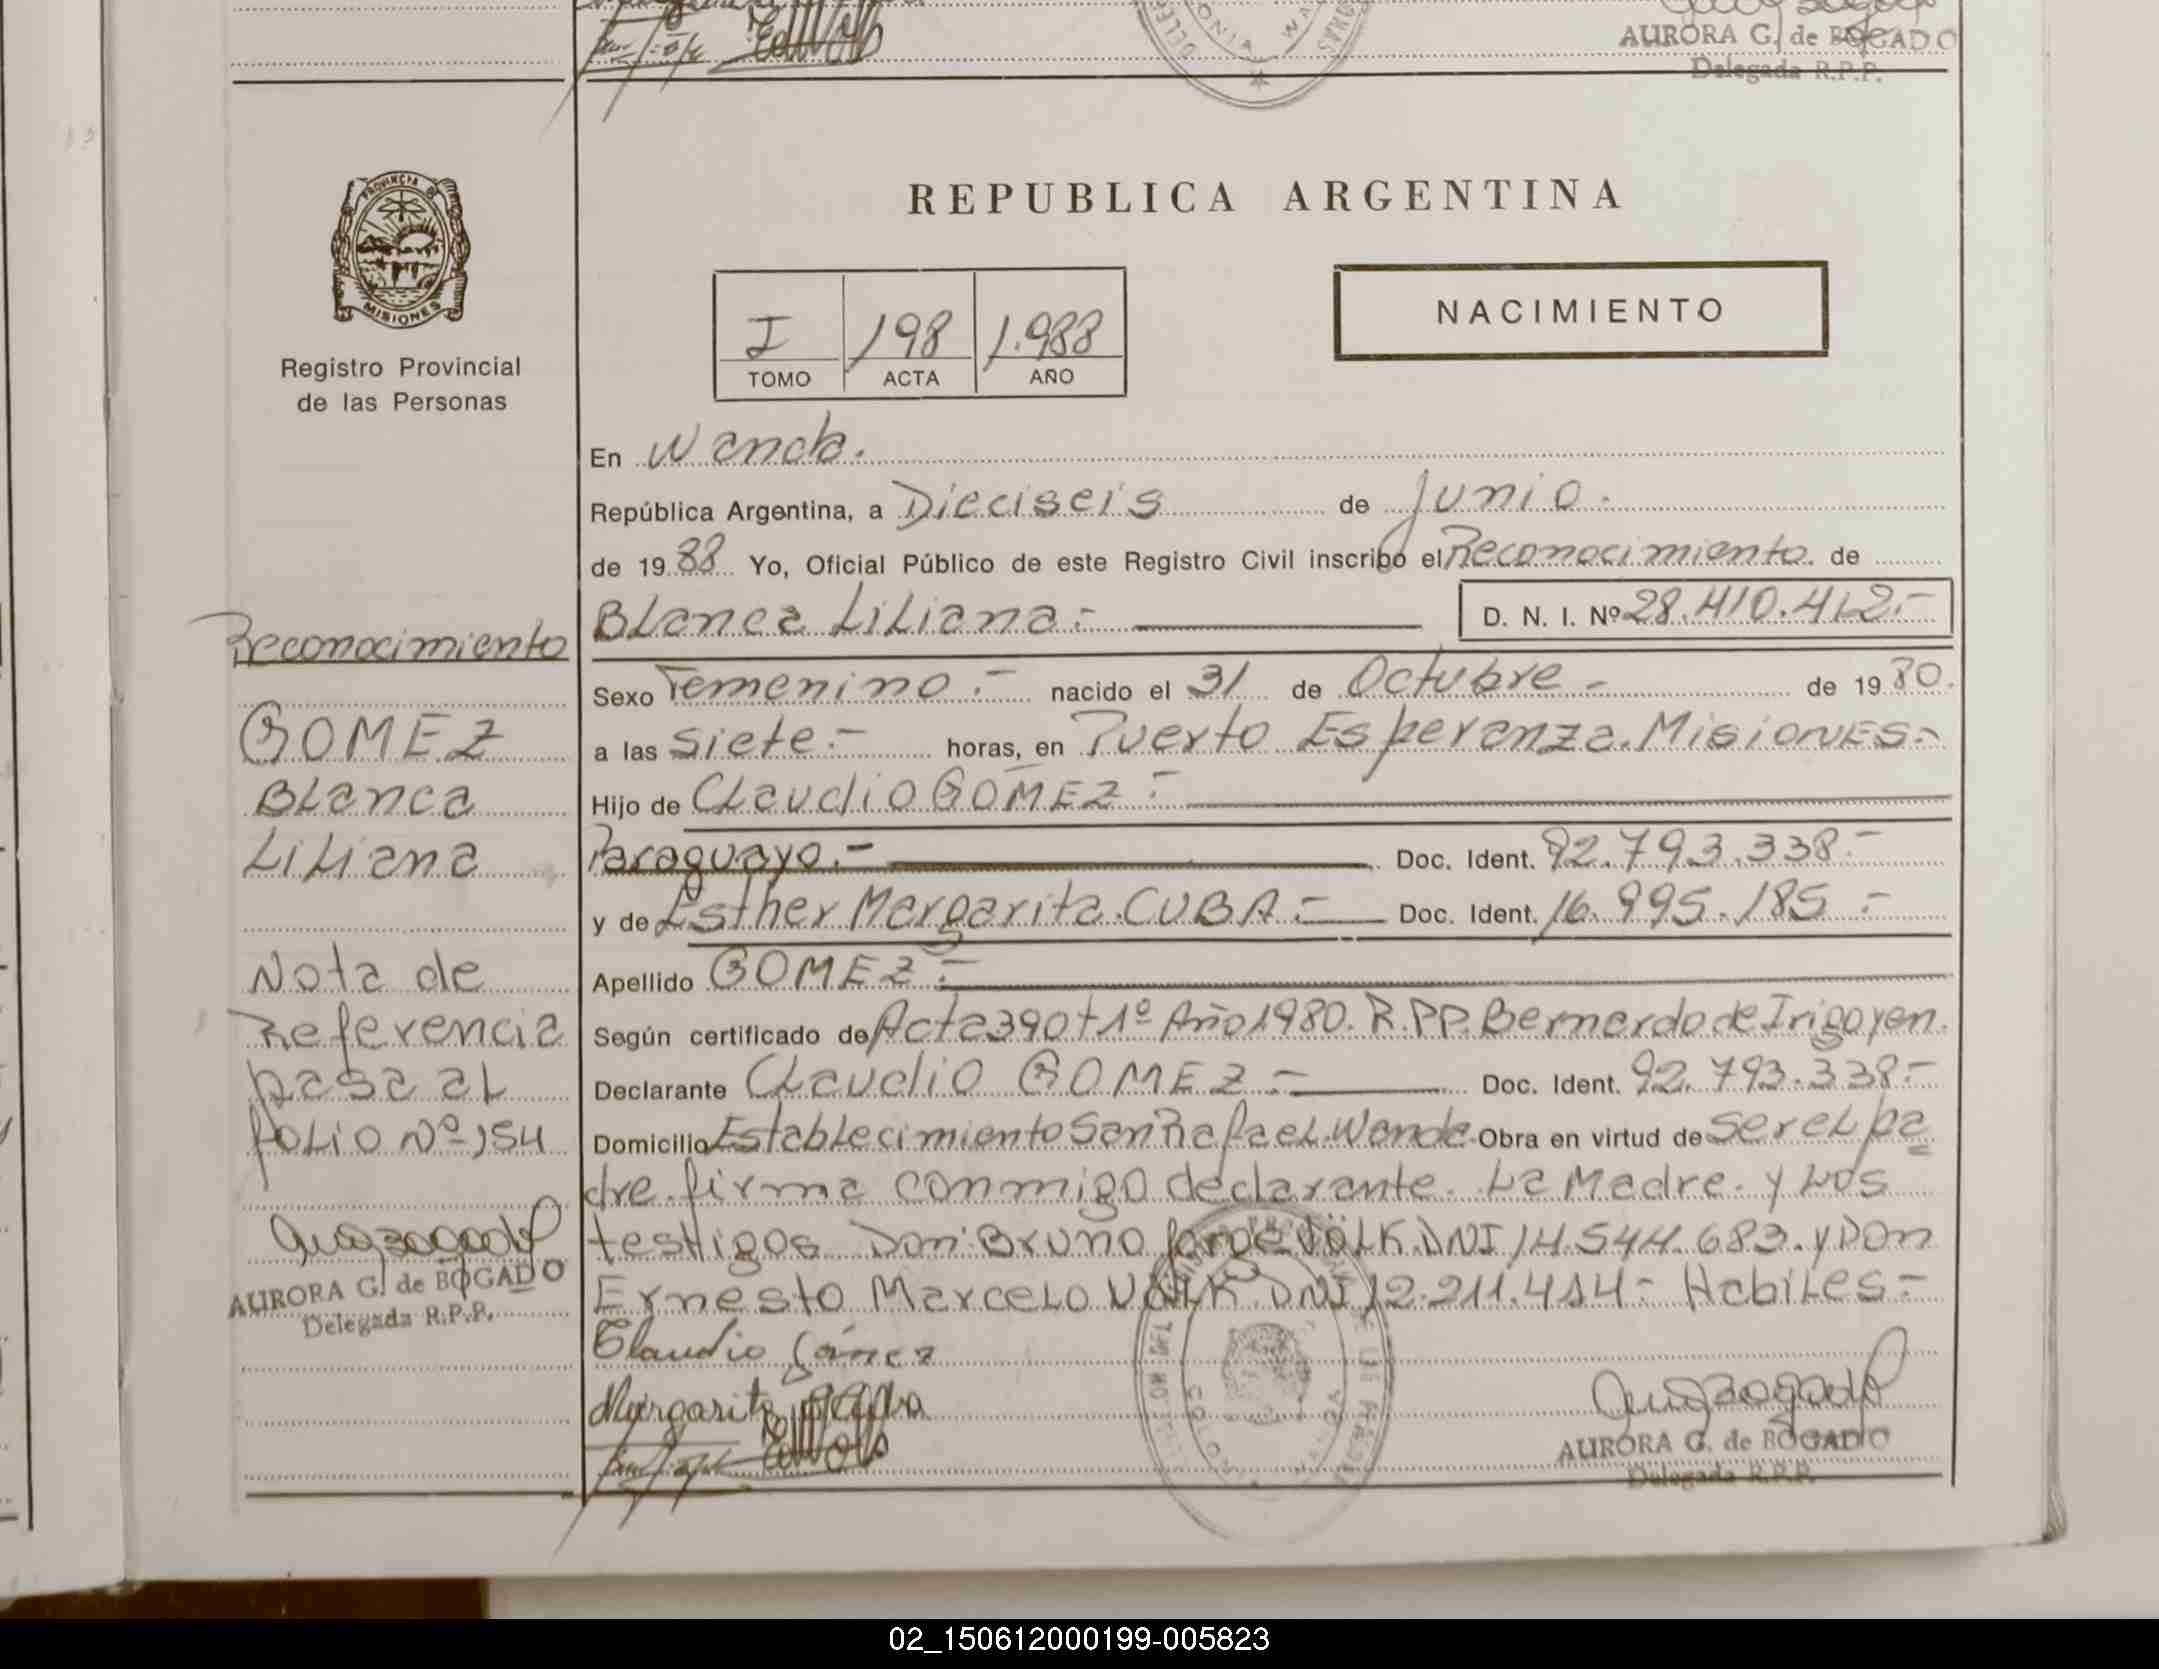 AURORA G. de BOGADO
Delegada R.P.P.
PROVINCIA DE
MISIONES
Registro Provincial
de las Personas
REPUBLICA ARGENTINA
NACIMIENTO
I 198 1.988
TOMO ACTA AÑO
En Wanda.
República Argentina, a Dieciseis de Junio.
de 1988 Yo, Oficial Público de este Registro Civil inscribo el Reconocimiento. de
Blanca Liliana.- D. N. I. Nº 28.410.412.-
Sexo Femenino.- nacido el 31 de Octubre - de 1980.
a las siete.- horas, en Puerto Esperanza. MisionES.-
Hijo de Claudio GOMEZ.-
Paraguayo.- Doc. Ident. 92.793.338.-
y de Esther Margarita. CUBA.- Doc. Ident. 16.995.185.-
Apellido GOMEZ.-
Según certificado de Acta 390 t 1º Año 1980. R.PP. Bernardo de Irigoyen.
Declarante Claudio GOMEZ.- Doc. Ident. 92.793.338.-
Domicilio Establecimiento San Rafael. Wanda. Obra en virtud de ser el pa
dre. firma conmigo declarante. La Madre. y Los
testigos Don: Bruno Jorge VÖLK. DNI 14.544.683. y Don
Ernesto Marcelo VÖLK DNI 12.211.414.- Habiles.-
Claudio Gómez
Margarita
AURORA G. de BOGADO
Delegada R.P.P.
Reconocimiento
GOMEZ
Blanca
Liliana
Nota de
Referencia
pasa al
folio Nº 154
AURORA G. de BOGADO
Delegada R.P.P.
02_150612000199-005823